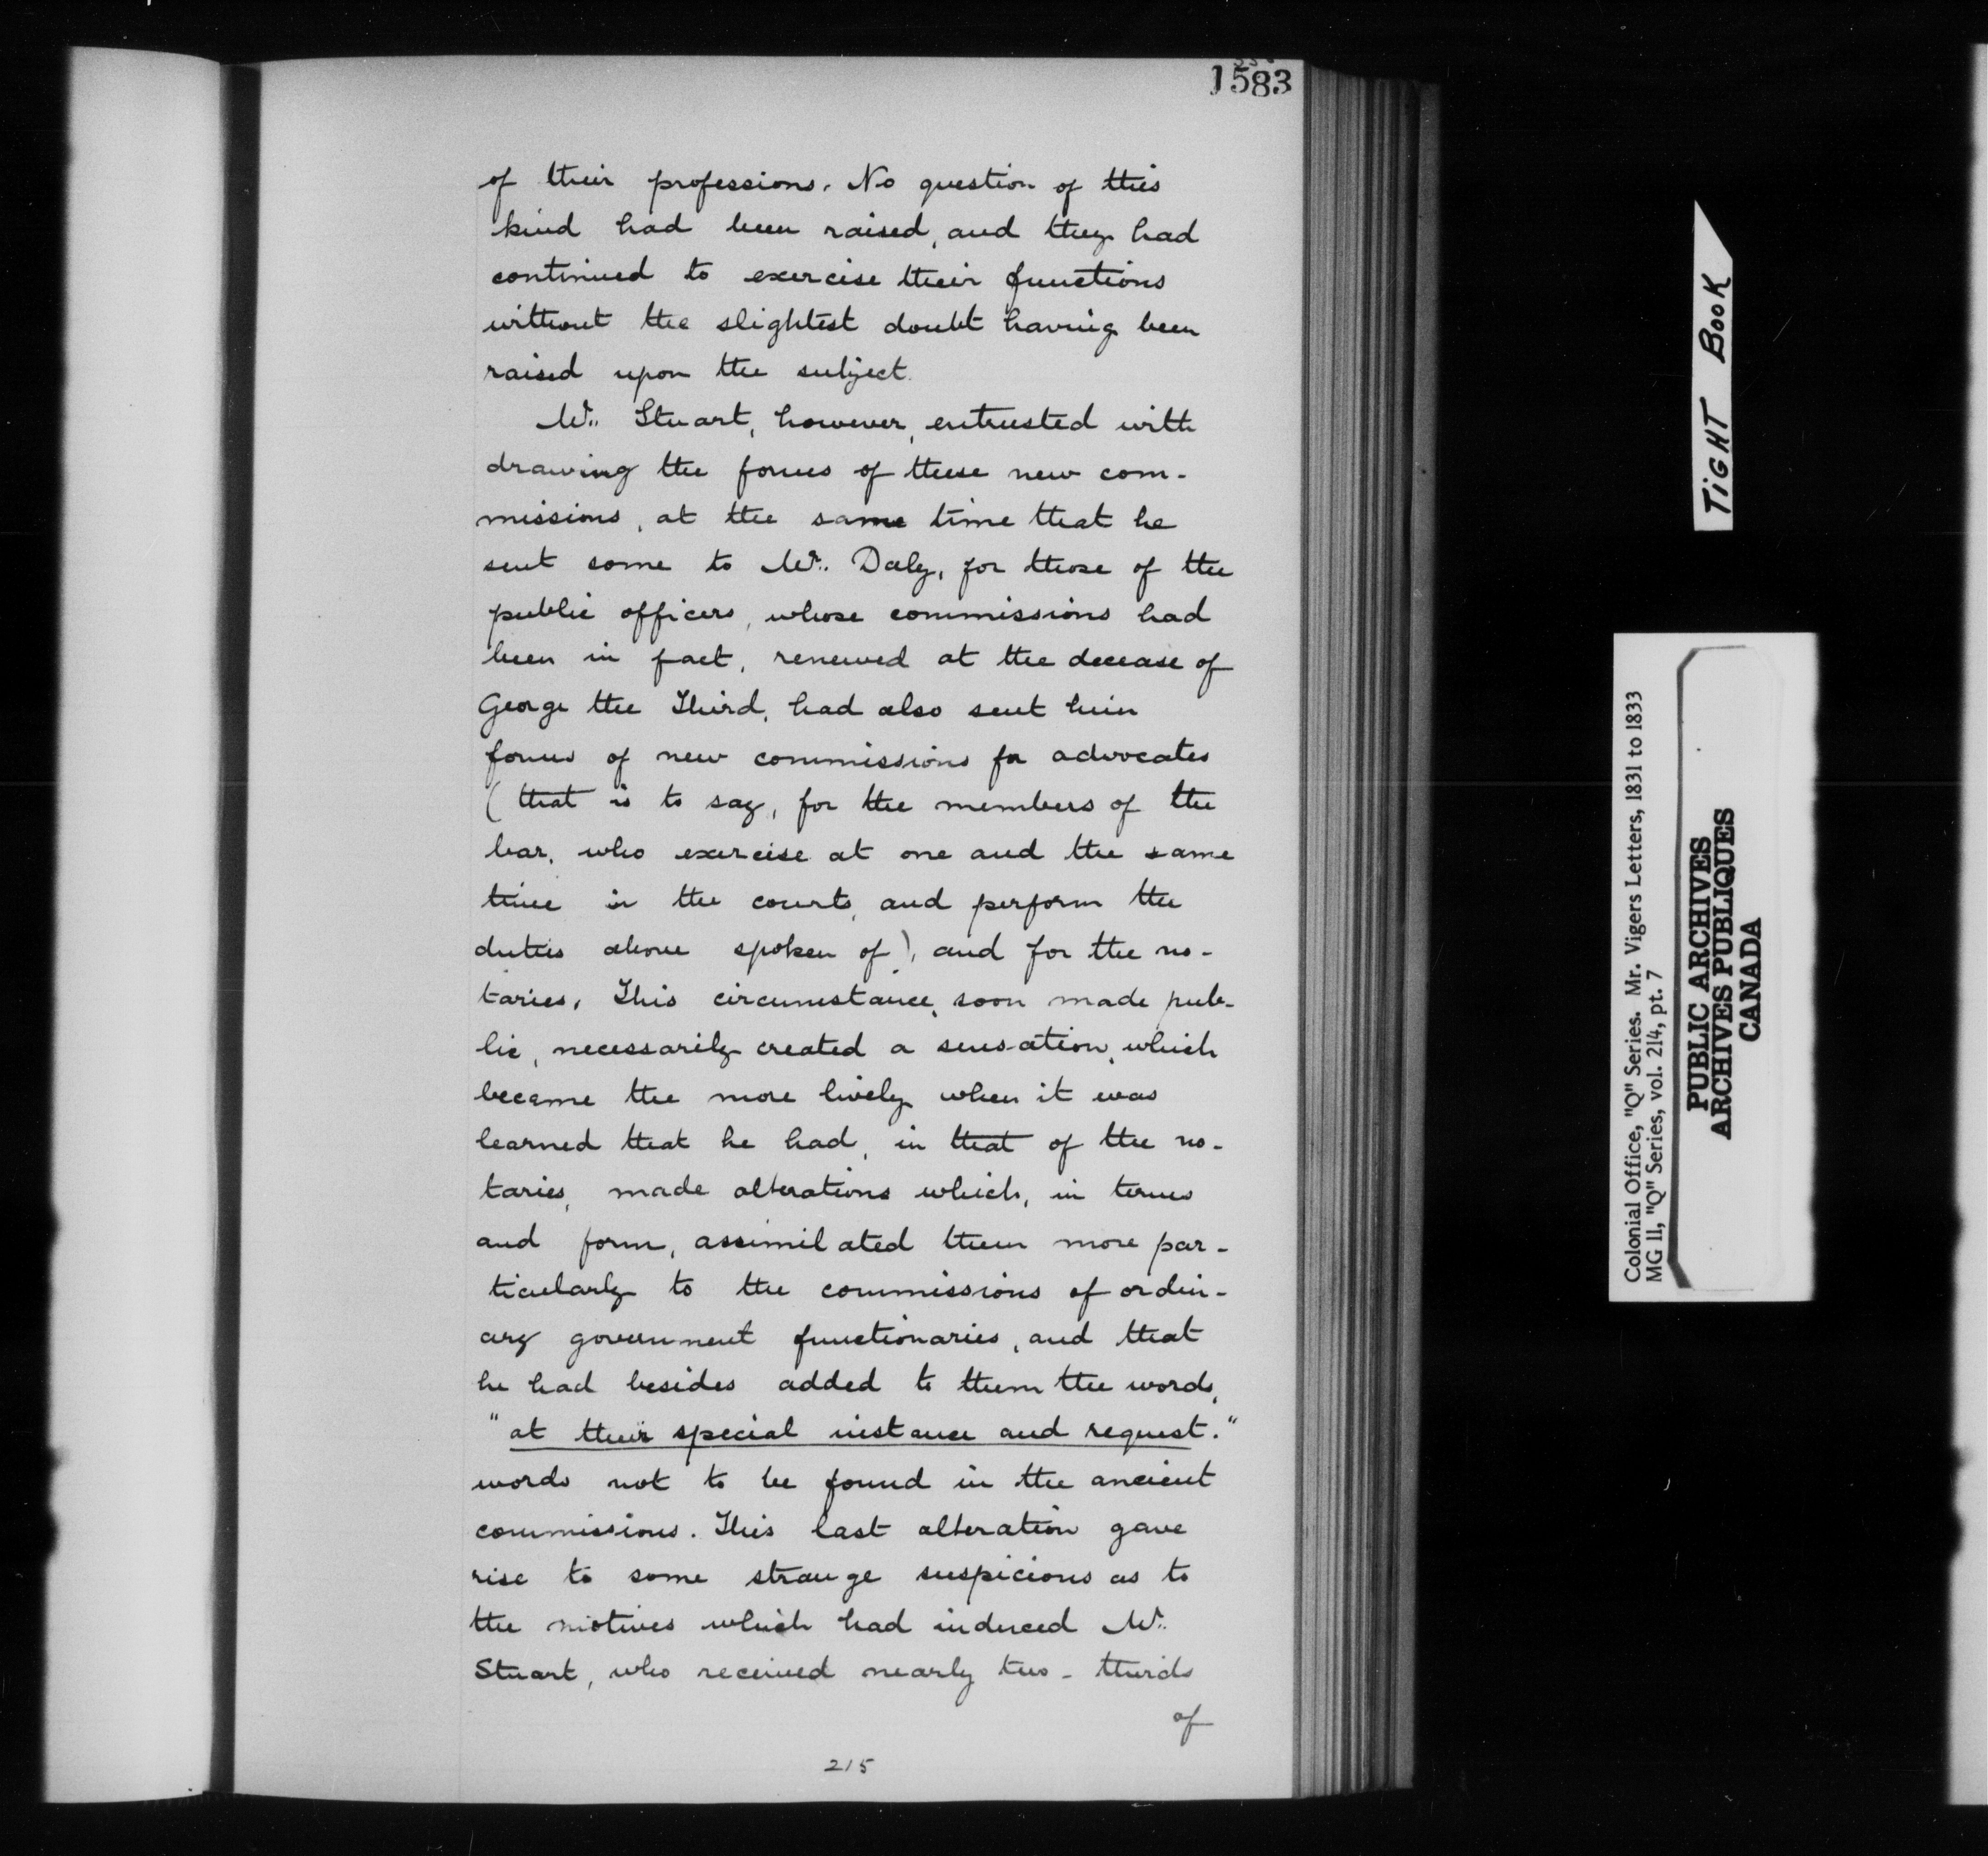 1583
of their professions. No question of this
kind had been raised, and they had
continued to exercise their functions
without the slightest doubt having been
raised upon the subject.
Mr. Stuart, however, entrusted with
drawing the forms of these new com-
missions, at the same time that he
sent some to Mr. Daly, for those of the
public officers, whose commissions had
been in fact, renewed at the decease of
George the Third, had also sent him
forms of new commissions for advocates
(that is to say, for the members of the
bar, who exercise at one and the same
time in the courts, and perform the
duties above spoken of), and for the no-
taries. This circumstance, soon made pub-
lic, necessarily created a sensation, which
became the more lively when it was
learned that he had, in that of the no-
taries, made alterations which, in terms
and form, assimilated them more par-
ticularly to the commissions of ordin-
ary government functionaries, and that
he had besides added to them the words,
"at their special instance and request."
words not to be found in the ancient
commissions. This last alteration gave
rise to some strange suspicions as to
the motives which had induced Mr.
Stuart, who received nearly two-thirds
of
215
TIGHT BOOK
Colonial Office, "Q" Series. Mr. Vigers Letters, 1831 to 1833
MG 11, "Q" Series, vol. 214, pt. 7
PUBLIC ARCHIVES
ARCHIVES PUBLIQUES
CANADA